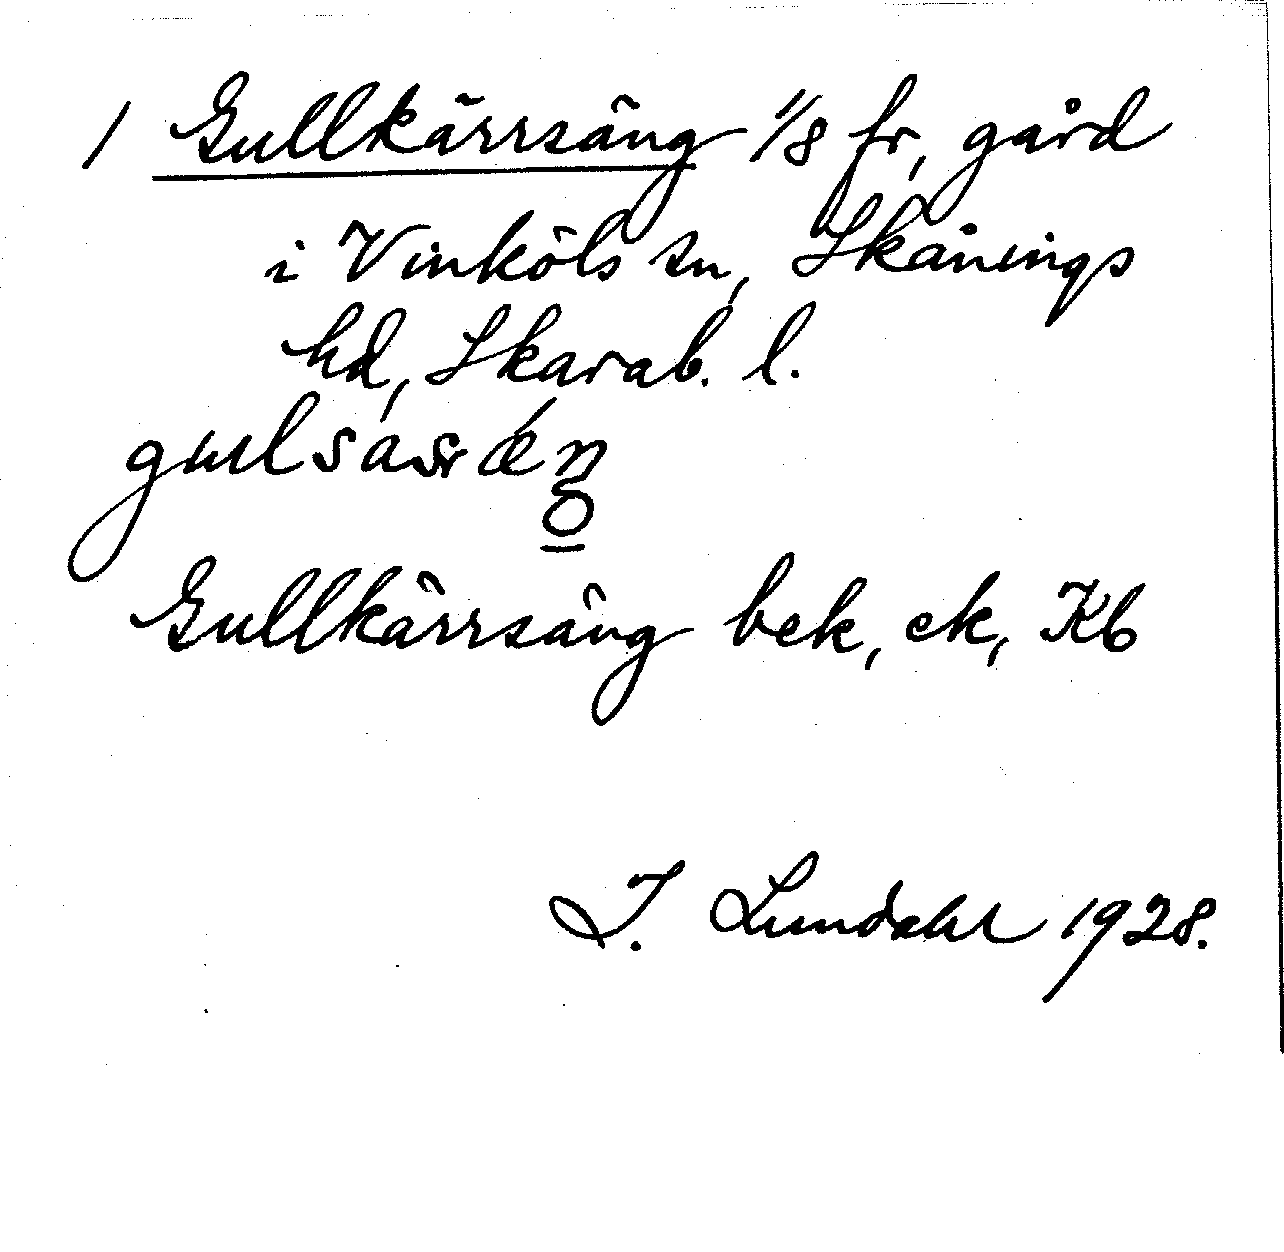 1 Gullkärrsäng 1/8 fr, gård
i Vinköls sn, Skånings
hd, Skarab. l.
Gullkärrsäng bek, ek, Kb
I. Lundahl 1928.